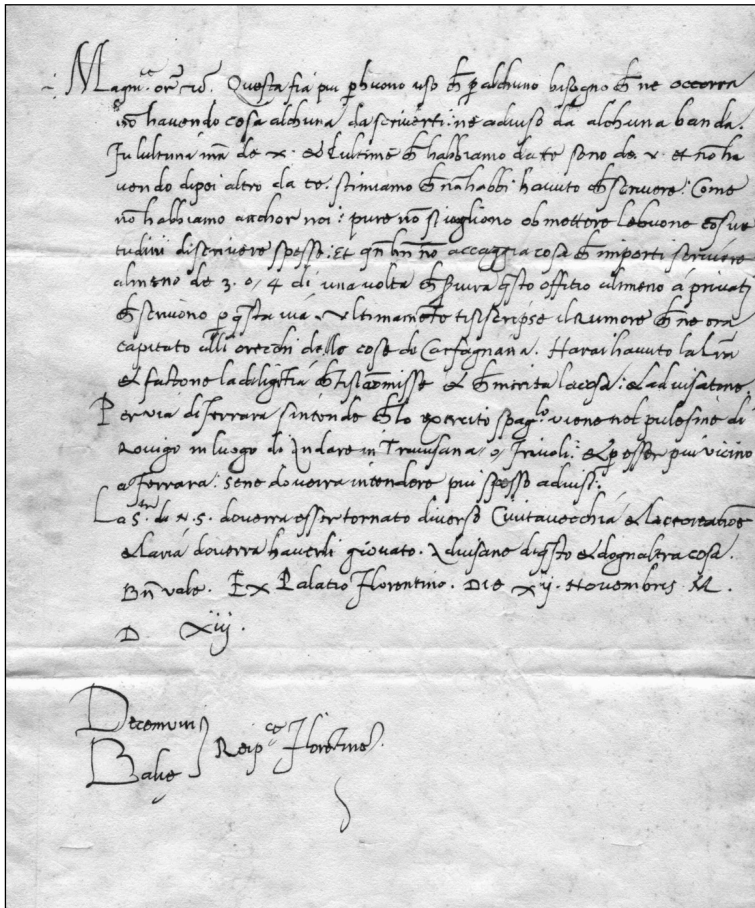 Magn.ce or.re n.ro. Questa fia piu p buono uso ch p alchuno bisogno ch ne occorra
nō havendo cosa alchuna da scriverti: ne adviso da alchuna banda.
Fu lultima mā de x. et lultime ch habbiamo da te sono de. v. et nō ha
vendo dipoi altro da te. stimiamo ch nō habbi havuto ch scrivere: Come
nō habbiamo anchor noi: pure nō si vogliono obmettere le buone cōsue
tudini di scrivere spesso: Et qn bn nō accaggia cosa ch importi scrivere
almeno de 3. o, 4 dí una volta ch Svira qsto offitio almeno á privati
ch scrivono p qsta via. Ultimamēto ti si scripse il Rumore ch ne era
capitato alli orecchi delle cose de Carfagnana. Harai havuto la lra
et factone la diligētia ch ti si cōmisse et ch merita la cosa: et advisatone.
Per via di Ferrara sintende ch lo exercito spag.lo viene nel pulesine di
Rovigo in luogo di Andare in Trivisana, o, Frivoli: et p esser piu vicino
a Ferrara: sene doverra intendere piu spesso advisi:
La S.tà di N. S. doverra esser tornato diverso Civitavecchiá et la recreatiōe
et laria doverra haverli giovato. Advisane di qsto et dognaltra cosa.
Bn vale. Ex Palatio Florentino. Die xij. Novembris M.
D. Xiij.
Decemviri
Balie } Reip.ce Florentine.